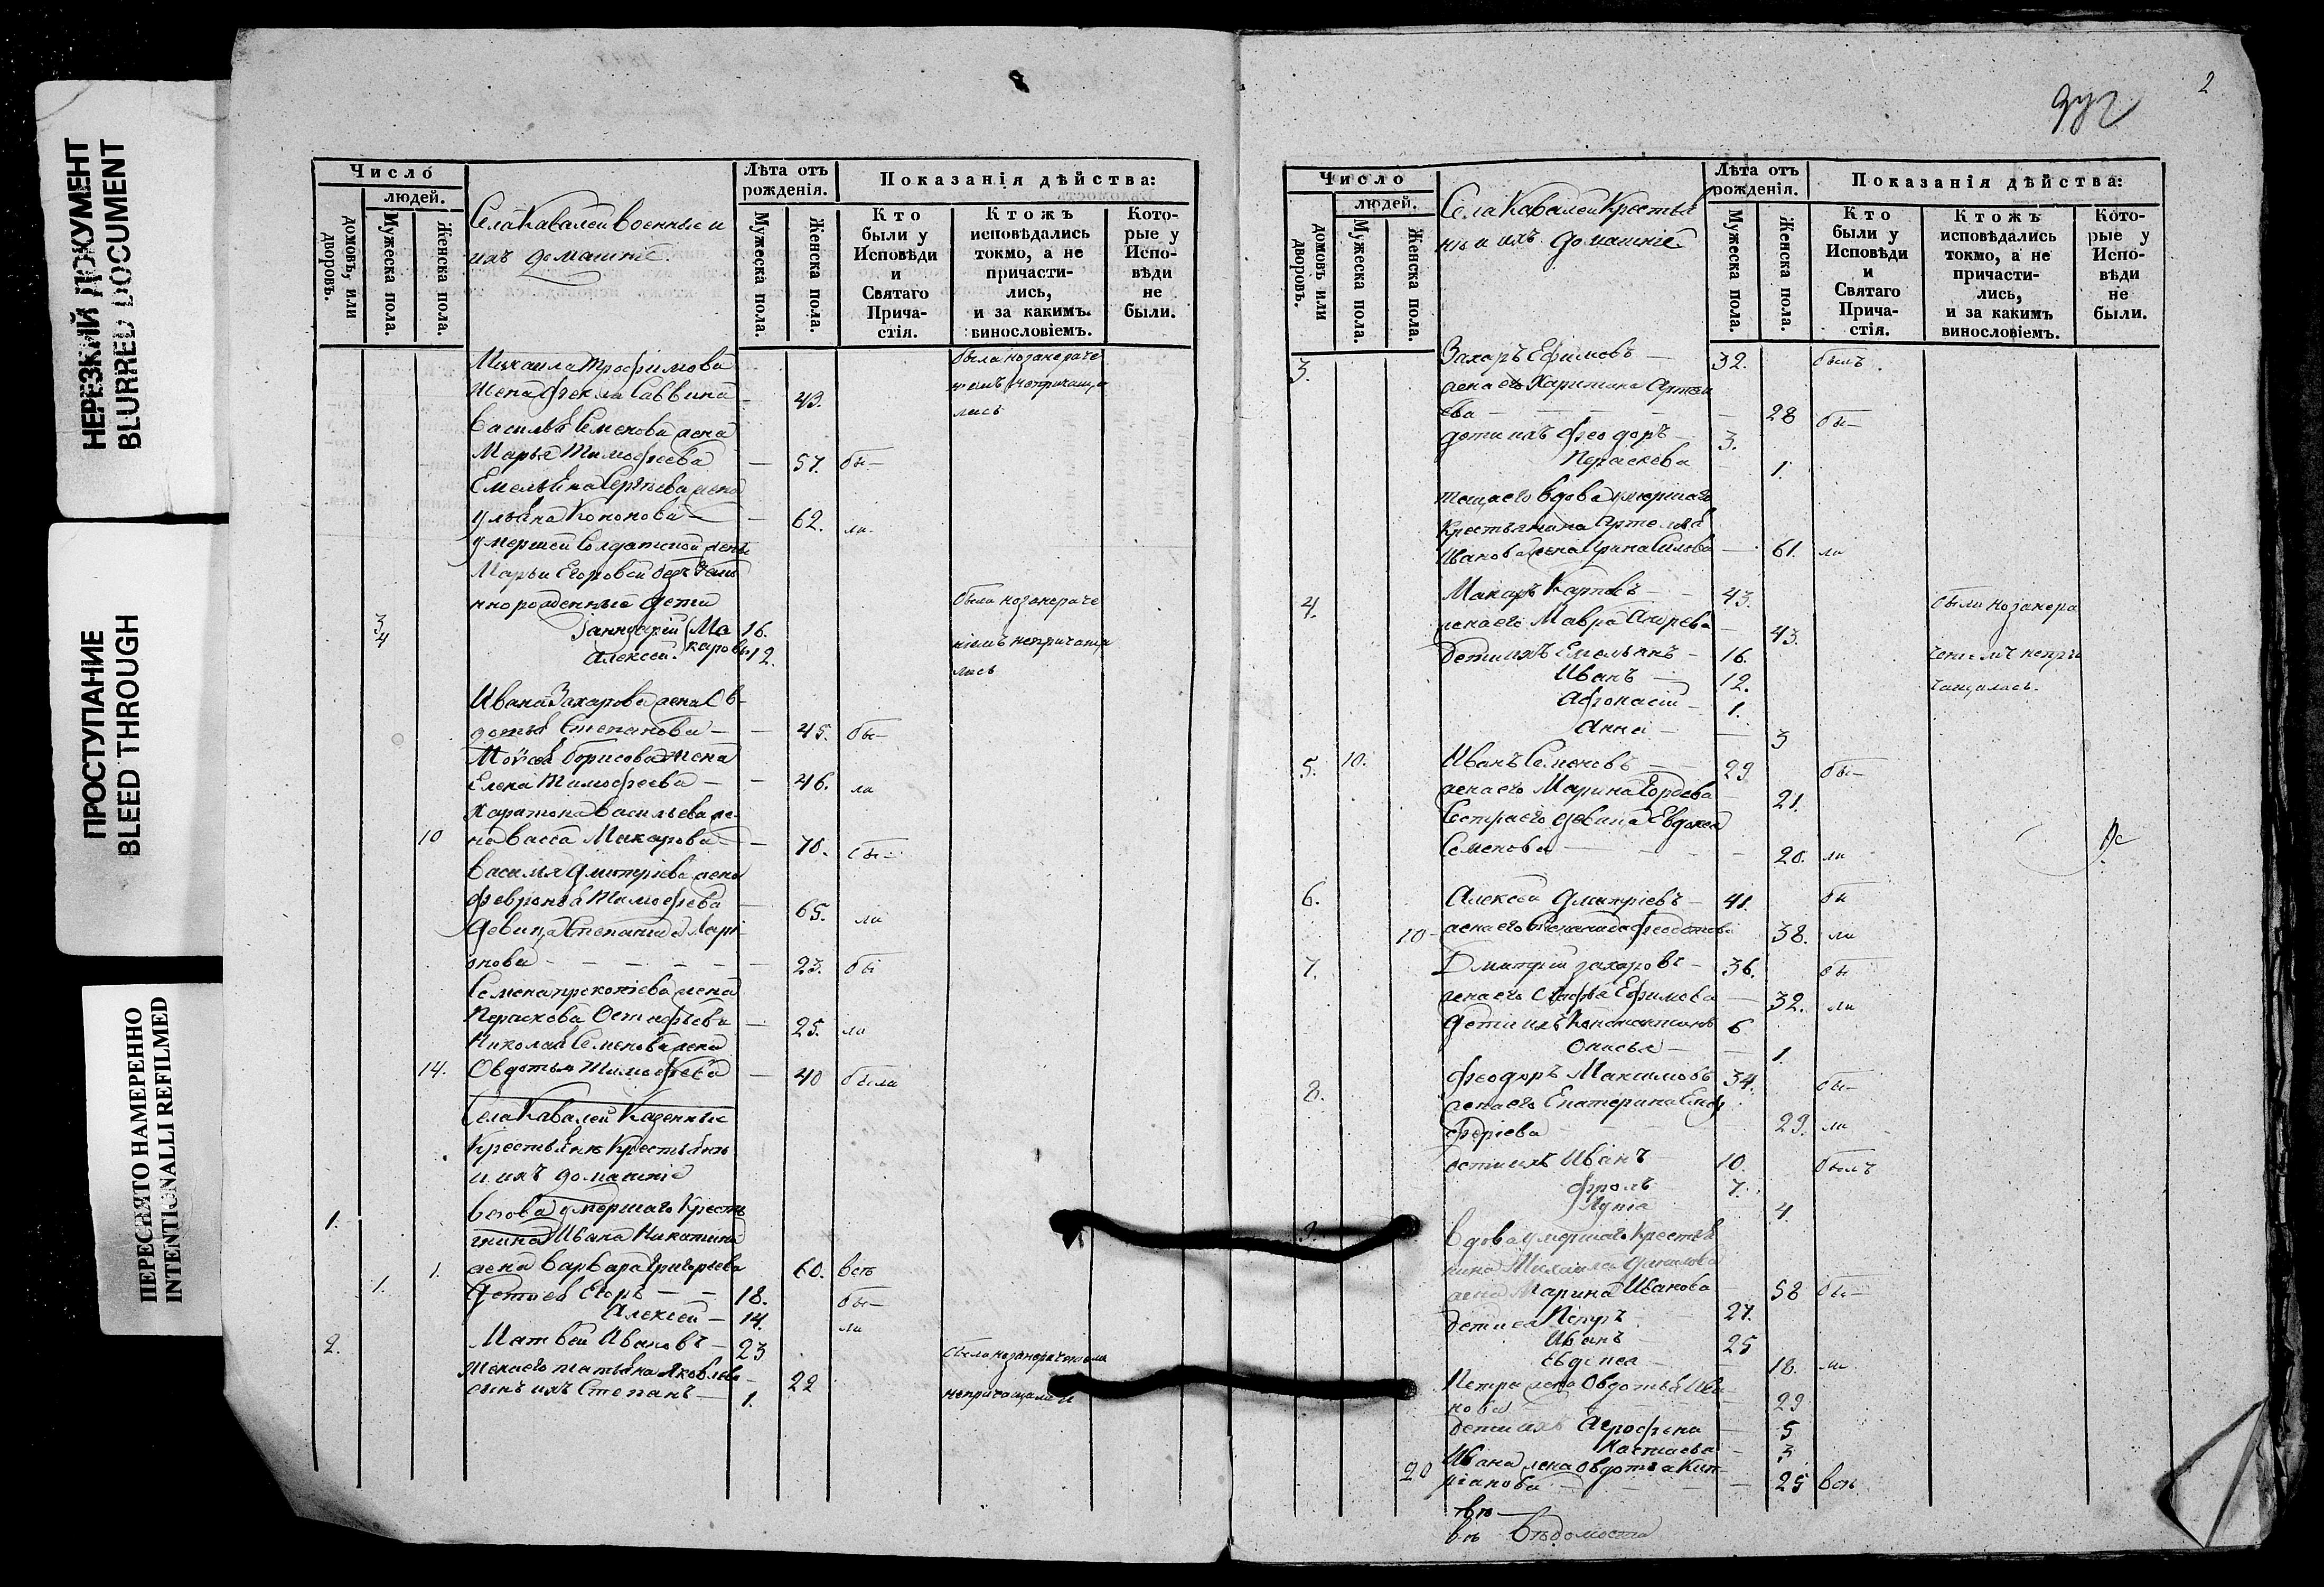 НЕРЕЗКИЙ ДОКУМЕНТ
BLURRED DOCUMENT
ПРОСТУПАНИЕ
BLEED THROUGH
ПЕРЕСНЯТО НАМЕРЕННО
INTENTIONALLI REFILMED
Число
людей.
домовъ, или дворовъ.
Мужеска пола.
Женска пола.
Села Кавалей военные и
ихъ домашніе.
Лѣта отъ рожденія.
Мужеска пола.
Женска пола.
Показанія дѣйства:
Кто были у Исповѣди и Святаго Прича- стія.
Ктожъ исповѣдались токмо, а не причасти- лись, и за какимъ винословіемъ.
Кото- рые у Испо- вѣди не были.
Михаила Трофимова
жена Фекла Саввина 43.
Василья Семенова жена
Марья Тимофеева — 57. бы—
Емельяна Сергѣева жена
Ульяна Кононова — 62. ла
умершей Солдатской жены
Марьи Егоровой
рожденные дети
3 16.
4 Алексей 12.
Ивана Захарова жена Ов
дотья Степанова — 45. бы—
Мойсея Борисова жена
Елена Тимофеева — 46. ла
Харитона Васильева же
10 на Васса Макарова — 70. бы—
Василия Дмитріева жена
Февронья Тимофеева 65. ла
Девица Степанида Ларі
онова — 23. бы
Семена Прокопіева жена
Параскова 25. ла
Николая Семенова жена
14. Овдотья Тимофеева — 40 была
Села Кавалей Казенные
Крестьяне
и ихъ домашніе
1. Вдова умершаго Кресть
янина Ивана Никитина
1. жена Варвара Григорьева 60. всѣ
1. Дети ея Егоръ — 18. бы—
Алексей — 14. ли
2. Матвей Ивановъ — 23
жена его Татьяна Яковлева 22
сынъ ихъ Степанъ — 1.
2
Число
людей.
домовъ или дворовъ.
Мужеска пола.
Женска пола
Села Кавалей Крестья
не и ихъ домашніе
Лѣта отъ рожденія.
Мужеска пола.
Женска пола.
Показанія дѣйства:
Кто были у Исповѣди и Святаго Прича- стія.
Ктожъ исповѣдались токмо, а не причасти- лись, и за какимъ винословіемъ.
Кото- рые у Испо- вѣди не были.
3. Захаръ Ефимовъ — 32. былъ
жена его Харитина Артем
ева — 28 бы—
дети ихъ Феодоръ 3.
Параскева 1.
теща его вдова умершаго
крестьянина Артемья
Иванова жена Ирина 61. ла
4. Макаръ Карповъ — 43.
жена его Мавра 43.
Дети ихъ Емельянъ — 16.
Иванъ — 12.
Афонасій — 1.
Анна — 3
5. 10. Иванъ Семеновъ — 29 бы—
жена его Марина 21.
Сестра его девица Евдокея
Семенова — 20. ли
6. Алексей Дмитріевъ — 41. бы
10 жена его Степанида Феодотова 38. ли
7. Дмитрій Захаровъ — 36. бы
жена его Ефимова 32. ли
Дети ихъ Константинъ 6
Онисья — 1.
8. Феодоръ Максимовъ 34. бы—
жена его Екатерина
29. ли
дети ихъ Иванъ 10. былъ
Фролъ 7.
4.
9. Вдова умершаго Крестья
нина Михаила
жена Марина Иванова 58 бы—
дети ея Петръ 27.
Иванъ 25
18. ли
Петра жена Овдотья Ива
нова 29
дети ихъ Агрофена 5
3
Ивана жена Овдотья Кип
20 ріанова — 25 всѣ